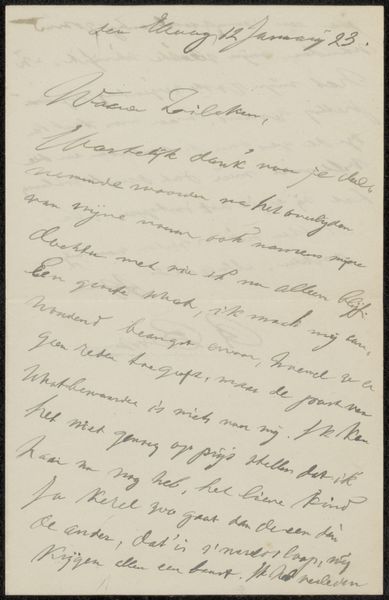 den Haag 12 Januarij 23.
Waarde Zilcken,
Hartelijk dank voor je deel-
nemende woorden na het overlijden
van mijne vrouw ook namens mijne
dochter met wie ik nu alleen blijf.
Een groote schat, ik mach mij een,
geen reden toe geeft, maar de post van
is niets voor mij. Ik kan
het niet genoeg op prijs stellen dat ik
haar nu nog heb, het lieve kind
Ja kerel zoo gaat dan de een dan
de ander, dat is 's werelds loop, wij
krijgen allen een beurt. Ik had verleden